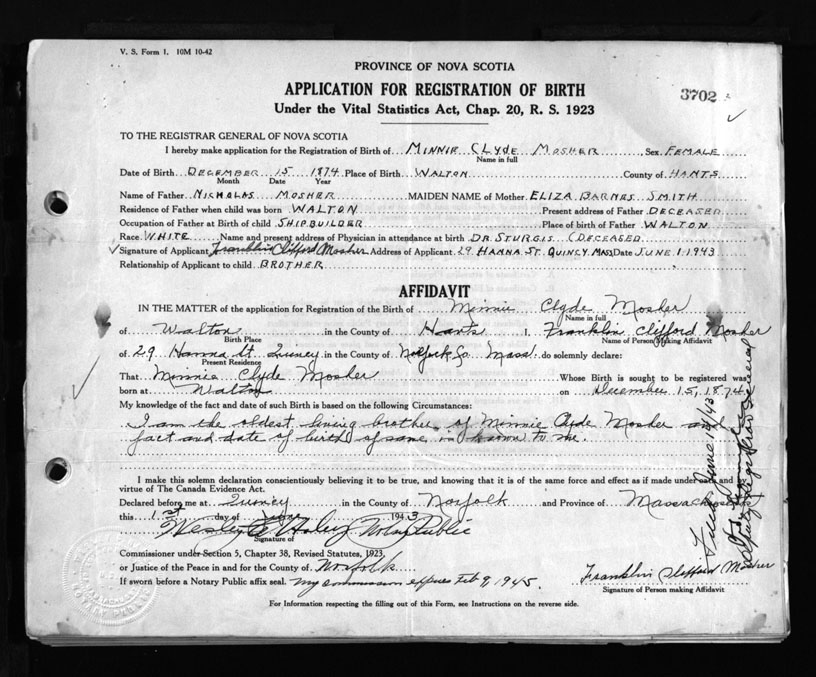 V. S. Form 1. 10M 10-42
PROVINCE OF NOVA SCOTIA
APPLICATION FOR REGISTRATION OF BIRTH
3702
Under the Vital Statistics Act, Chap. 20, R. S. 1923
TO THE REGISTRAR GENERAL OF NOVA SCOTIA
I hereby make application for the Registration of Birth of MINNIE CLYDE MOSHER Sex FEMALE
Name in full
Date of Birth DECEMBER 15 1874 Place of Birth WALTON County of HANTS
Month Date Year
Name of Father NICHOLAS MOSHER MAIDEN NAME of Mother ELIZA BARNES SMITH
Residence of Father when child was born WALTON Present address of Father DECEASED
Occupation of Father at Birth of child SHIPBUILDER Place of birth of Father WALTON
Race WHITE Name and present address of Physician in attendance at birth DR STURGIS (DECEASED
Signature of Applicant Franklin Clifford Mosher Address of Applicant 29 HANNA ST. QUINCY, MASS Date JUNE 1. 1943
Relationship of Applicant to child BROTHER
AFFIDAVIT
IN THE MATTER of the application for Registration of the Birth of Minnie Clyde Mosher
Name in full
of Walton in the County of Hants I, Franklin Clifford Mosher
Birth Place Name of Person Making Affidavit
of 29 Hanna St Quincy in the County of Norfolk Co. Mass do solemnly declare:
Present Residence
That Minnie Clyde Mosher Whose Birth is sought to be registered was
born at Walton on December 15, 1874
My knowledge of the fact and date of such Birth is based on the following Circumstances:
I am the oldest living brother of Minnie Clyde Mosher and
fact and date of birth of same is known to me.
I make this solemn declaration conscientiously believing it to be true, and knowing that it is of the same force and effect as if made under oath and by
virtue of The Canada Evidence Act.
Declared before me at Quincy in the County of Norfolk and Province of Massachusetts
this 1st day of June 1943
Wesley Notary Public
Signature of
Commissioner under Section 5, Chapter 38, Revised Statutes, 1923,
or Justice of the Peace in and for the County of Norfolk
If sworn before a Notary Public affix seal. My commission expires Feb 9, 1945.
Franklin Clifford Mosher
Signature of Person making Affidavit
For Information respecting the filling out of this Form, see Instructions on the reverse side.
Filed June 14/43
Deputy Registrar General